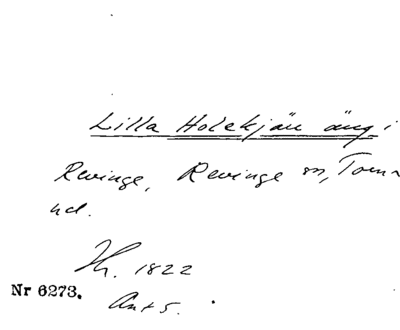 Lilla Holekjän äng i
Revinge, Revinge sn, Torna
hd.
Th. 1822
Nr 6273. Ant 5.